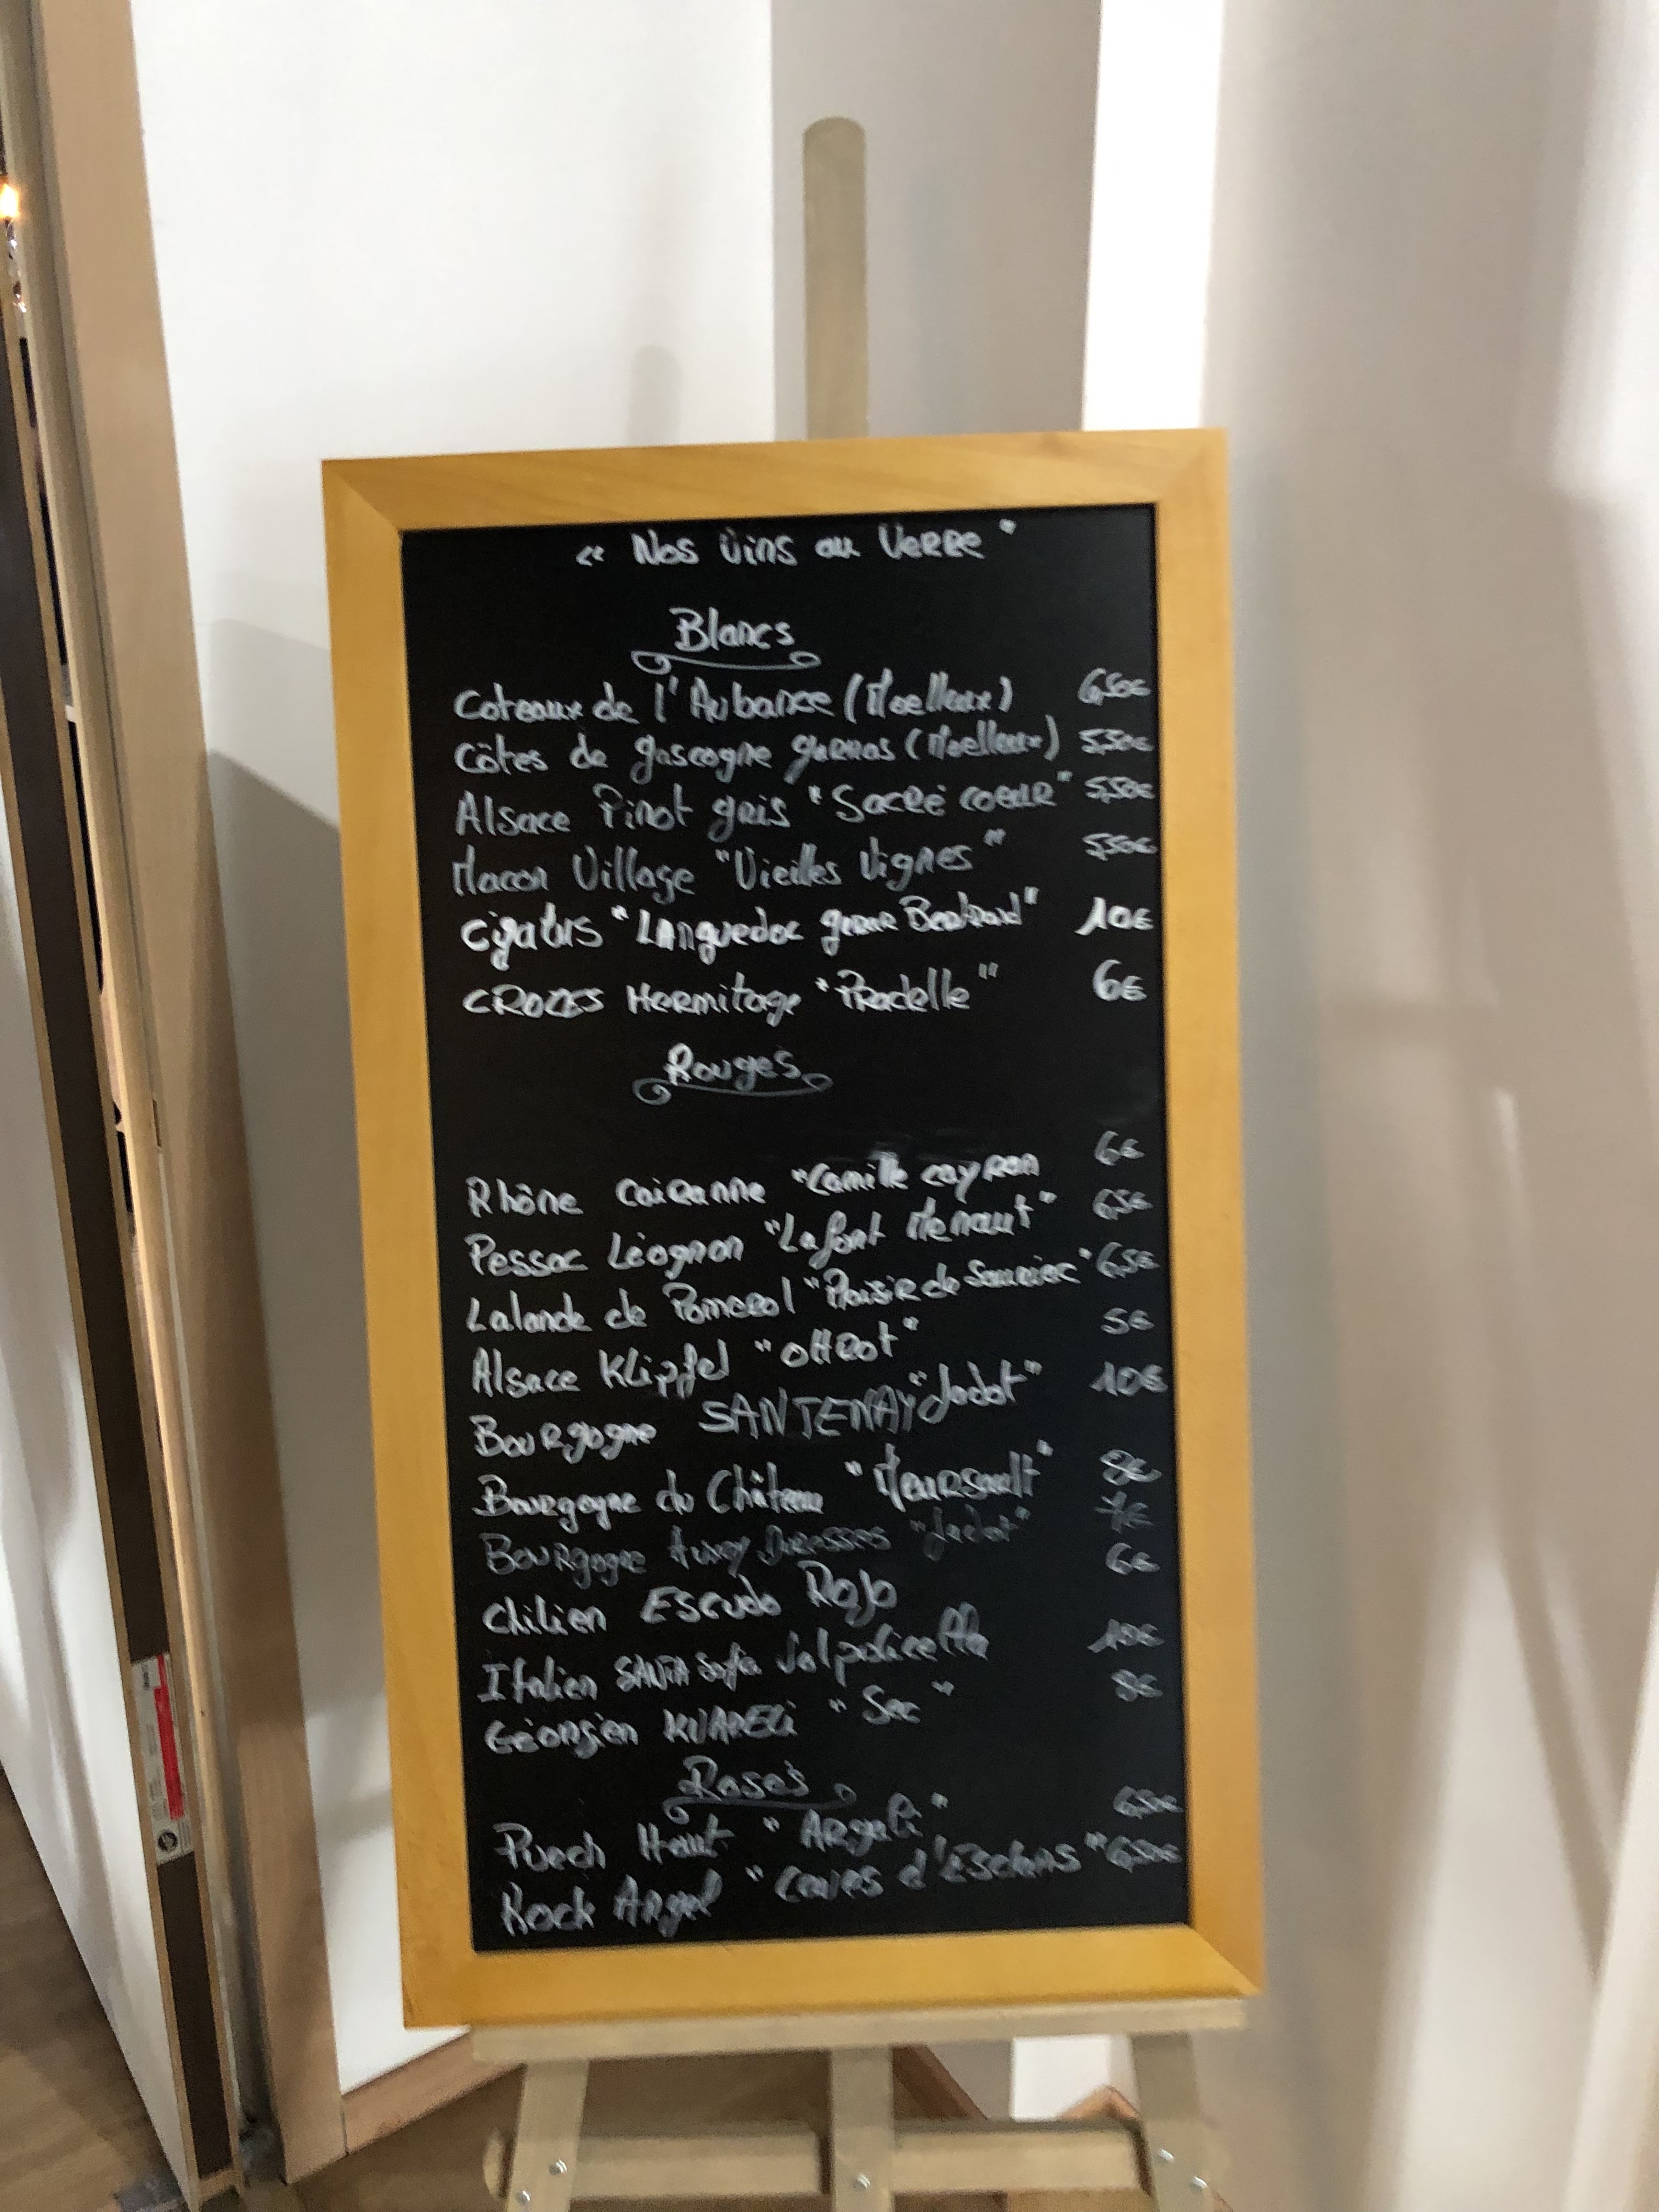 " Nos Vins au Verre "
Blancs
Coteaux de l'Aubance (Moelleux) 6,50€
Côtes de gascogne (Moelleux) 5,50€
Alsace Pinot gris "Sacré coeur" 5,50€
Macon Village "Vieilles Vignes" 5,50€
Cigalus "Languedoc Bertrand" 10€
CROZES Hermitage "Pradelle" 6€
Rouges
Rhône Cairanne "Camille cayran 6€
Pessac Léognan "Lafont Menaut" 6,5€
Lalande de Pomerol "Plaisir de 6,5€
Alsace Klipfel "ottrot" 5€
Bourgogne SANTENAY "Jadot" 10€
Bourgogne du Château "Meursault" 8€
Bourgogne Auxey Duresses "Jadot" 7€
Chilien Escudo Rojo 6€
Italien SANTA Sofia Valpolicella 10€
Géorgien KVARELI "Sec" 8€
Rosés
Puech Haut "Argali" 6,50€
Rock Angel "Caves d'Esclans" 6,50€